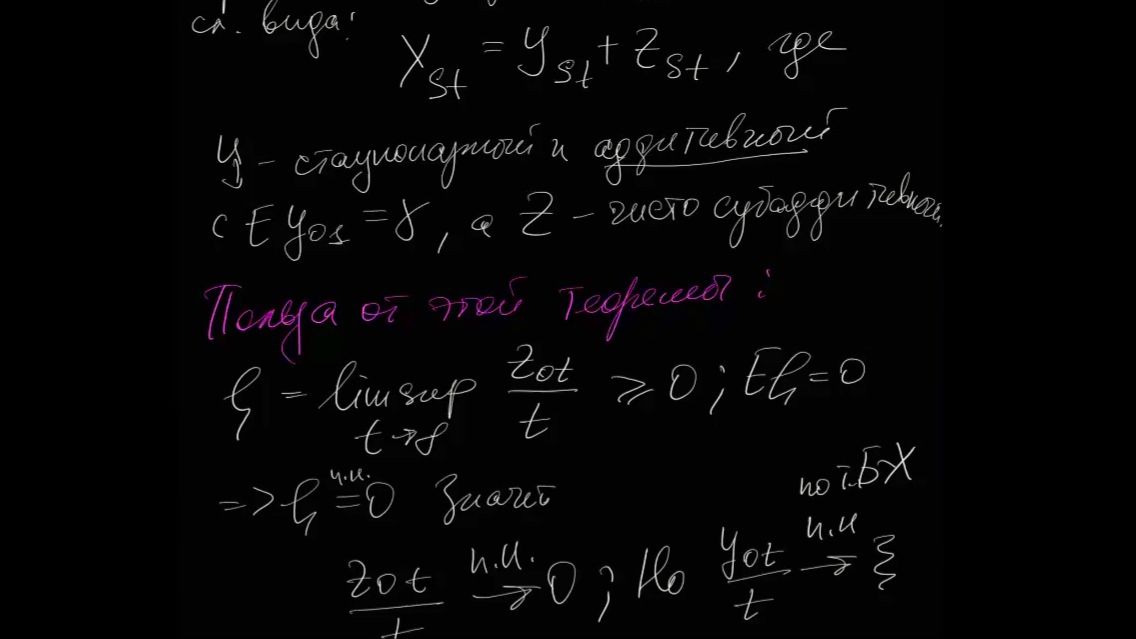 сл. вида:
X_st = Y_st + Z_st, где
Y – стационарный и аддитивный
с E Y_0s = γ, а Z – чисто субаддитивный.
Польза от этой теоремы:
ζ = lim sup_{t→∞} Z_0t / t ≥ 0; Eζ = 0
=> ζ п.н. = 0 Значит
по т. БХ
Z_0t / t п.н. → 0; Но Y_0t / t п.н. → ξ